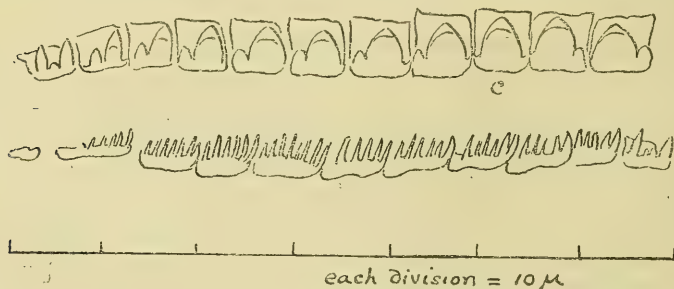 c
each division = 10 μ